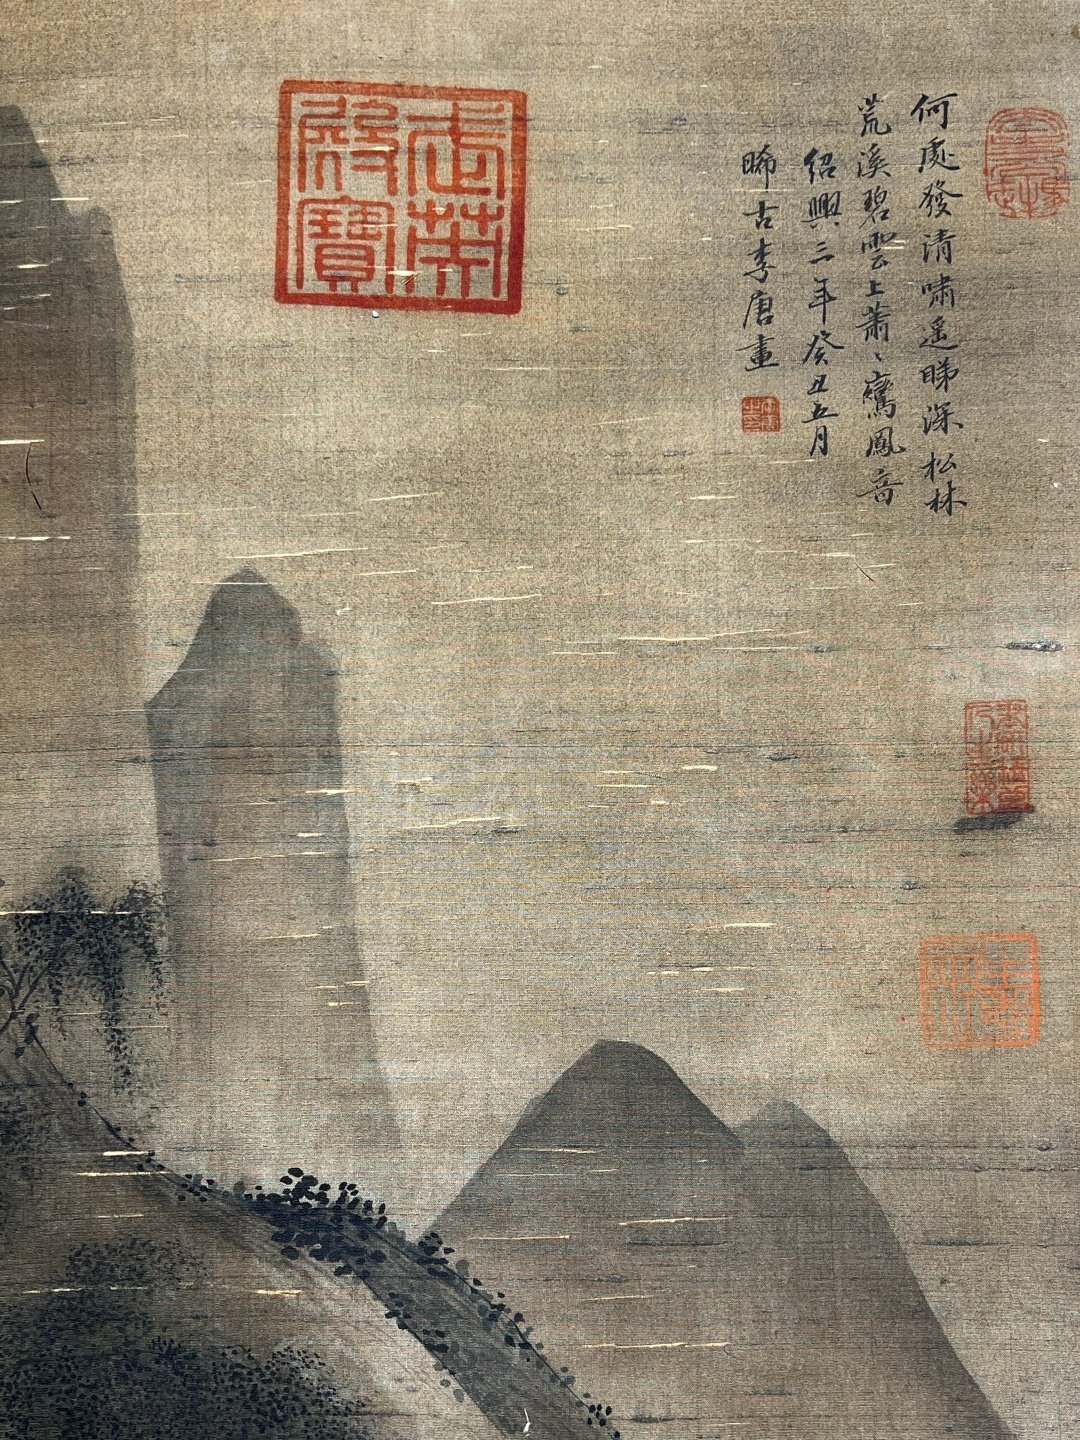 何處發清嘯遥睇深松林
荒溪碧雲上蕭〻鸞鳳音
紹興三年癸丑五月
晞古李唐畫
武英
殿寶